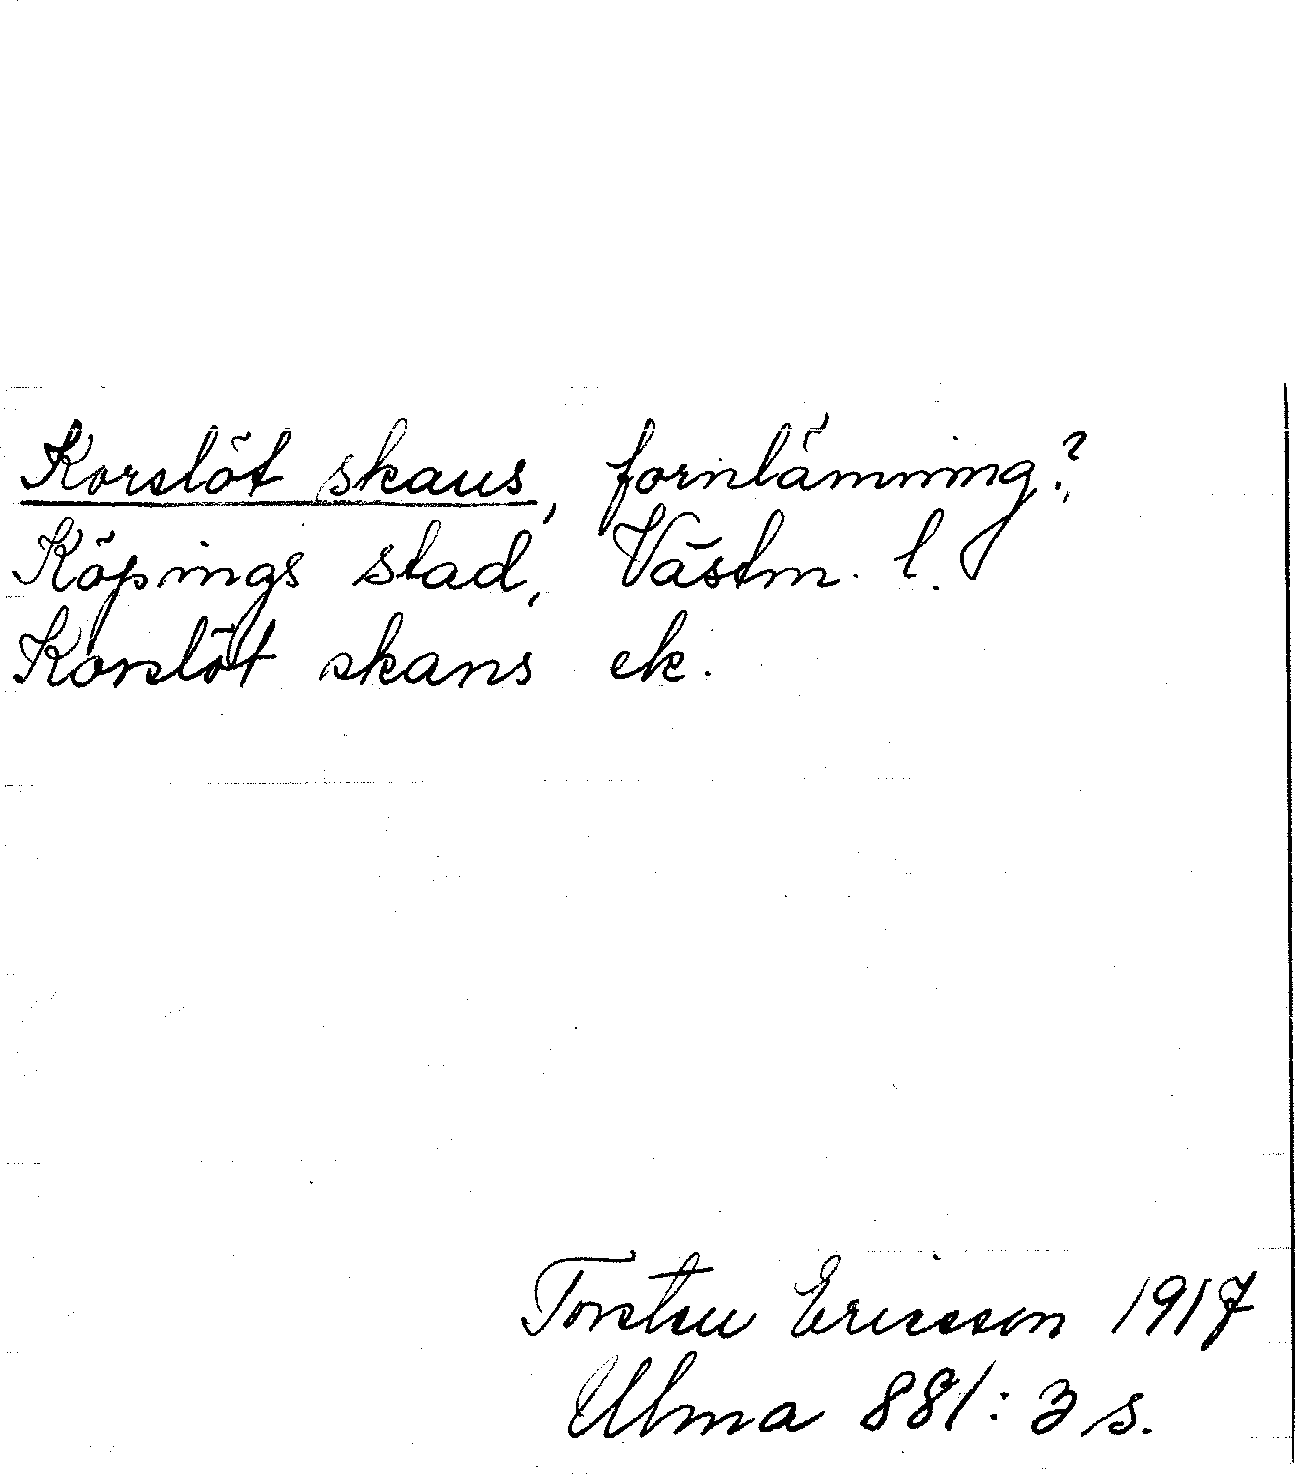 Korslöt skans, fornlämning?
Köpings stad, Västm. l.
Korslöt skans ek.
Torsten Ericsson 1917
Ulma 881:3 s.